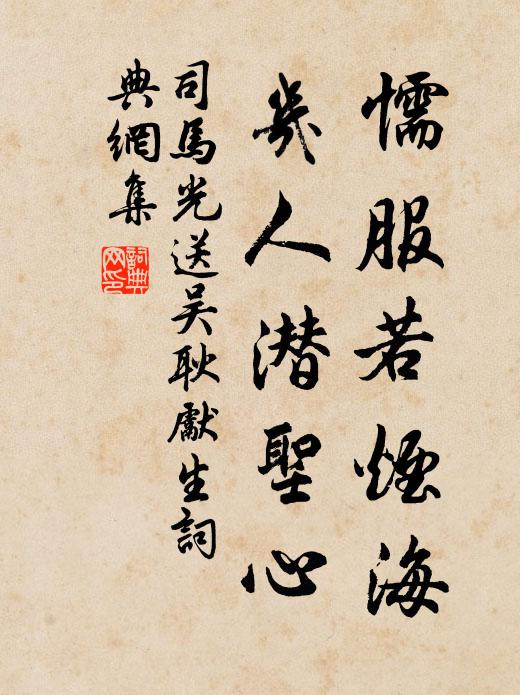 懦服若煙海
幾人潜聖心
司馬光送吴耿獻生詞
典網集
詞典
网印